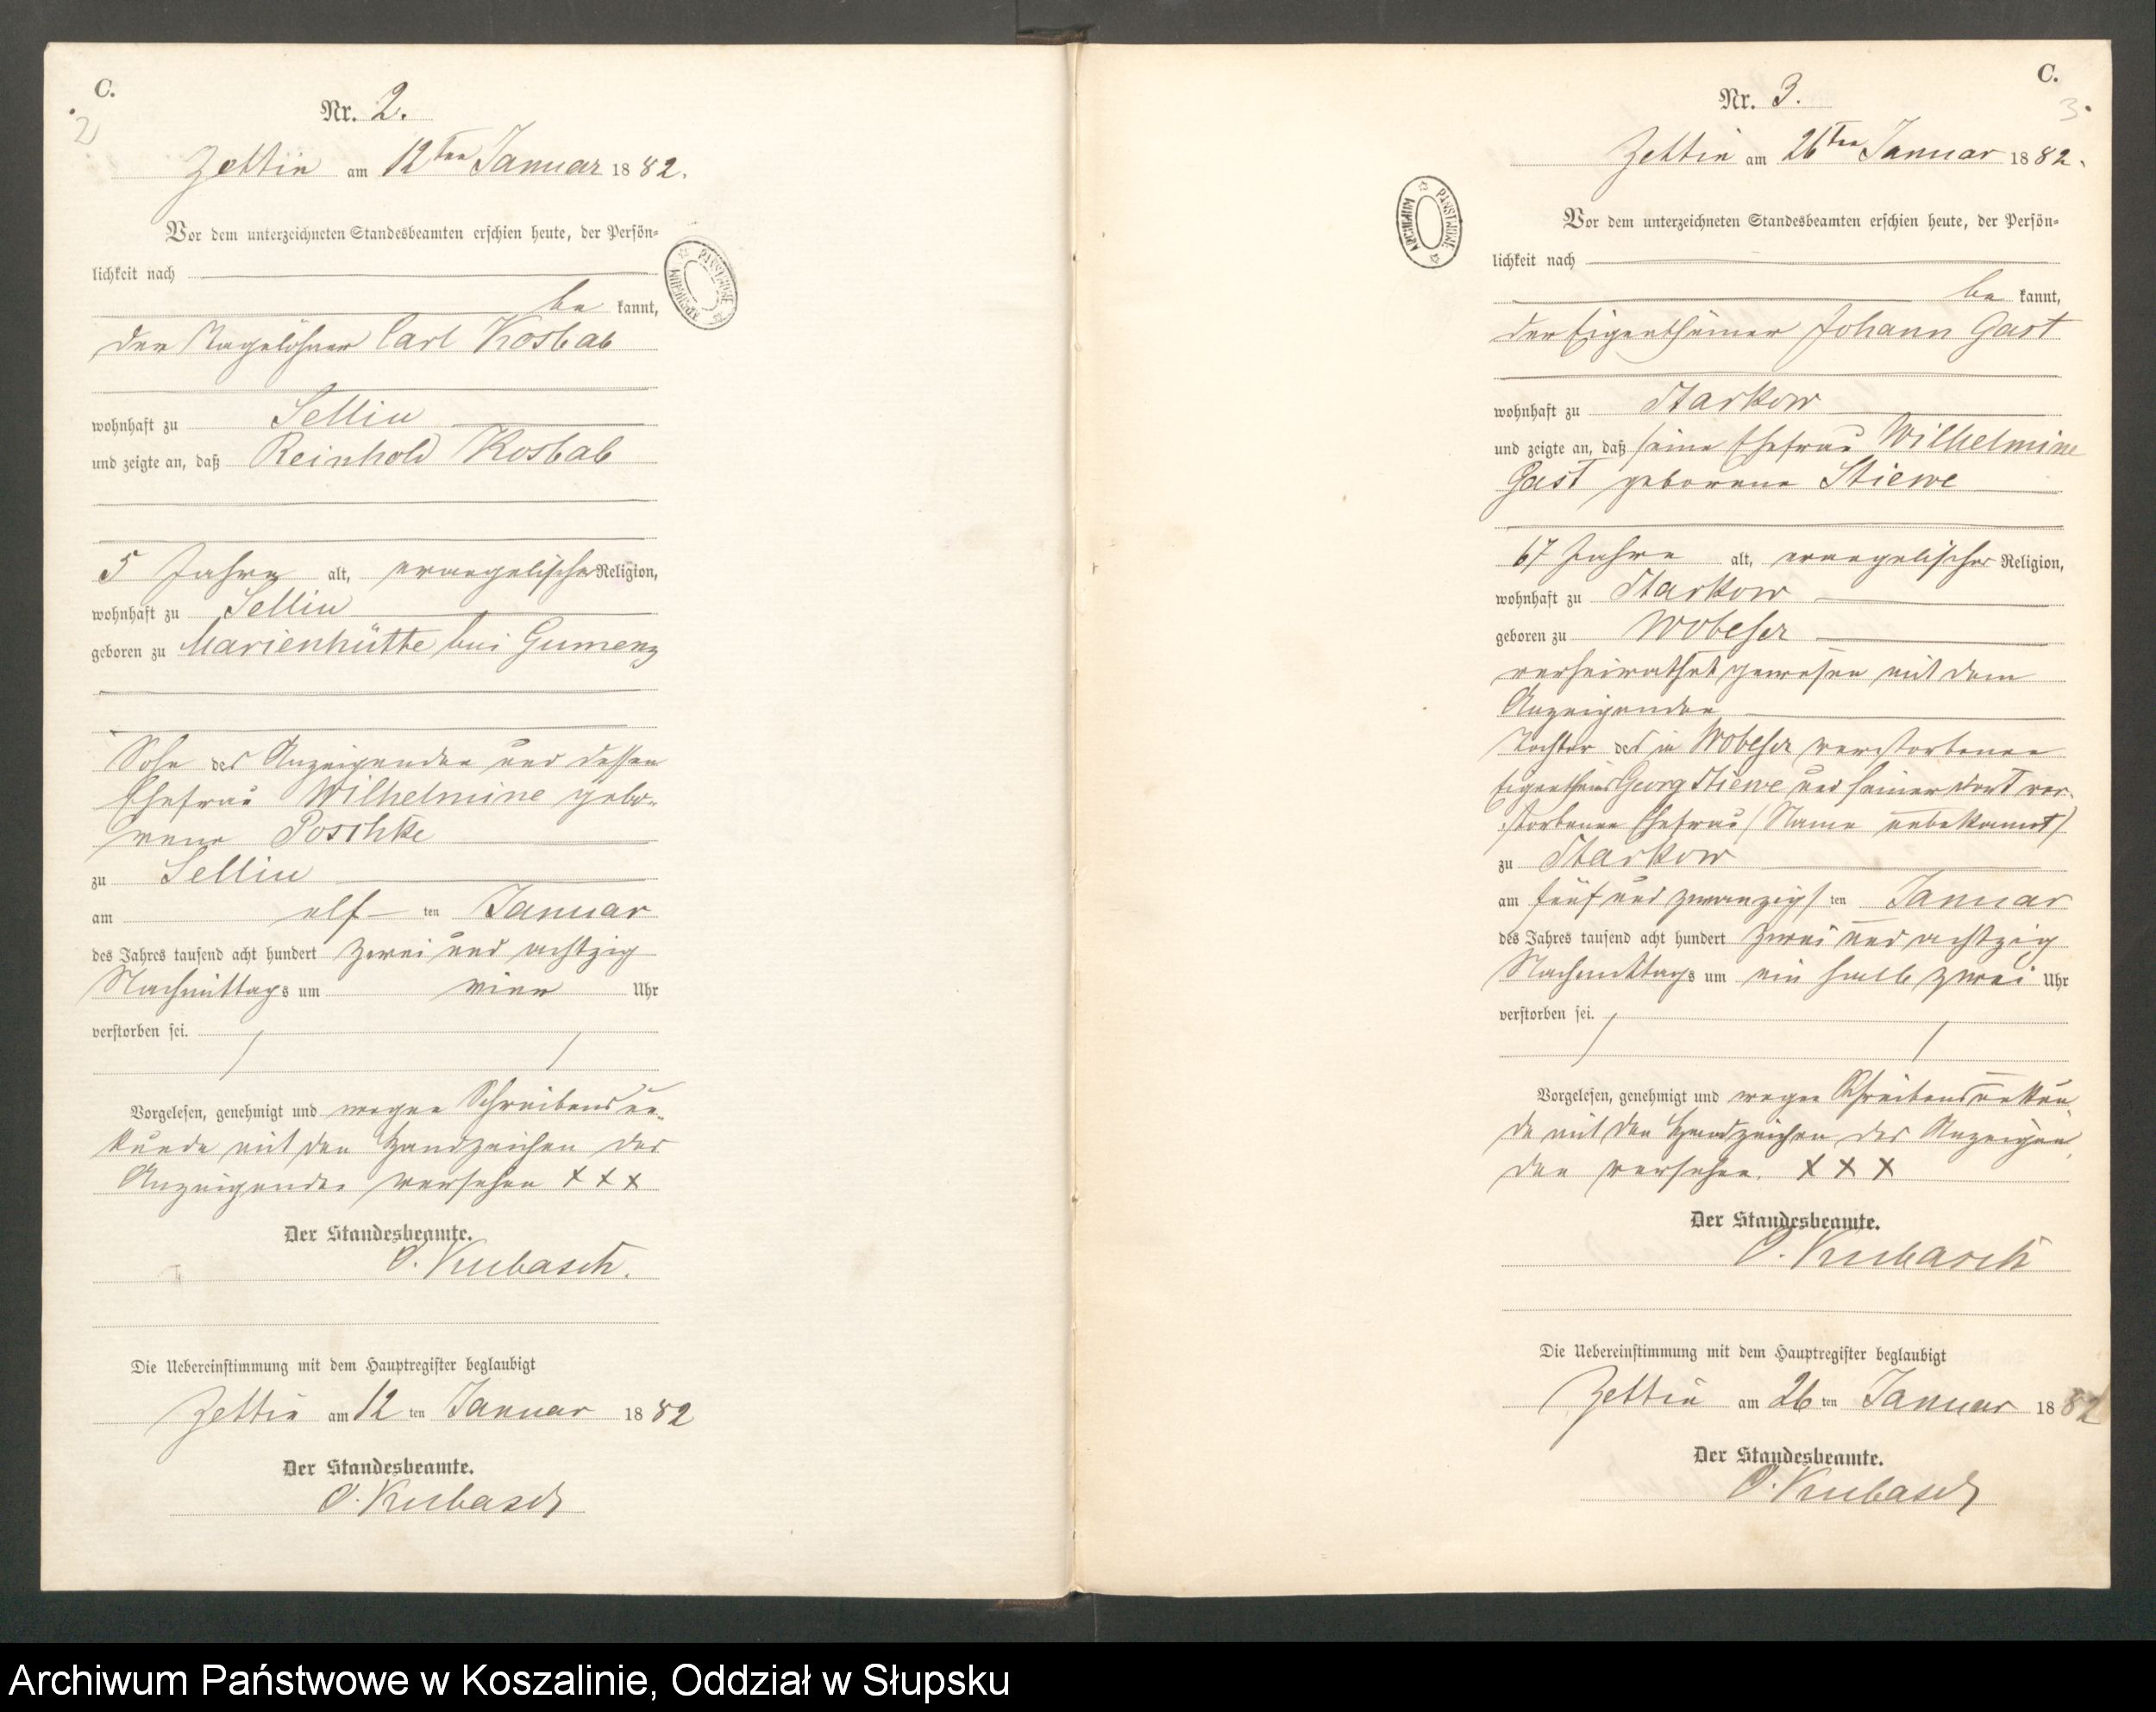 C.
2
Nr. 2.
Zettin am 12ten Januar 1882.
Vor dem unterzeichneten Standesbeamten erschien heute, der Persön-
lichkeit nach
be kannt,
der Tagelöhner Carl Kosbab
wohnhaft zu Sellin
und zeigte an, daß Reinhold Kosbab
5 Jahre alt, evangelischer Religion,
wohnhaft zu Sellin
geboren zu Marienhütte bei Gumenz
Sohn des Anzeigenden und dessen
Ehefrau Wilhelmine gebo-
rene Poschke
zu Sellin
am elf ten Januar
des Jahres tausend acht hundert zwei und achtzig
Nachmittags um vier Uhr
verstorben sei.
Vorgelesen, genehmigt und wegen Schreibensun-
kunde mit den Handzeichen des
Anzeigenden versehen XXX
Der Standesbeamte.
O. Kubasch.
Die Uebereinstimmung mit dem Hauptregister beglaubigt
Zettin am 12 ten Januar 1882
Der Standesbeamte.
O. Kubasch
ARCHIWUM PAŃSTWOWE
C.
3
Nr. 3.
Zettin am 26ten Januar 1882.
Vor dem unterzeichneten Standesbeamten erschien heute, der Persön-
lichkeit nach
be kannt,
der Eigenthümer Johann Gast
wohnhaft zu Starkow
und zeigte an, daß seine Ehefrau Wilhelmine
Gast geborene Stiewe
67 Jahre alt, evangelischer Religion,
wohnhaft zu Starkow
geboren zu Wobeser
verheirathet gewesen mit dem
Anzeigenden
Tochter des in Wobeser verstorbenen
Eigenthümers Georg Stiewe und seiner dort ver-
storbenen Ehefrau (Name unbekannt)
zu Starkow
am fünf und zwanzigsten Januar
des Jahres tausend acht hundert zwei und achtzig
Nachmittags um ein halb zwei Uhr
verstorben sei.
Vorgelesen, genehmigt und wegen Schreibensunkun
de mit den Handzeichen des Anzeigen
den versehen. XXX
Der Standesbeamte.
O. Kubasch
Die Uebereinstimmung mit dem Hauptregister beglaubigt
Zettin am 26 ten Januar 1882
Der Standesbeamte.
O. Kubasch
ARCHIWUM PAŃSTWOWE
Archiwum Państwowe w Koszalinie, Oddział w Słupsku